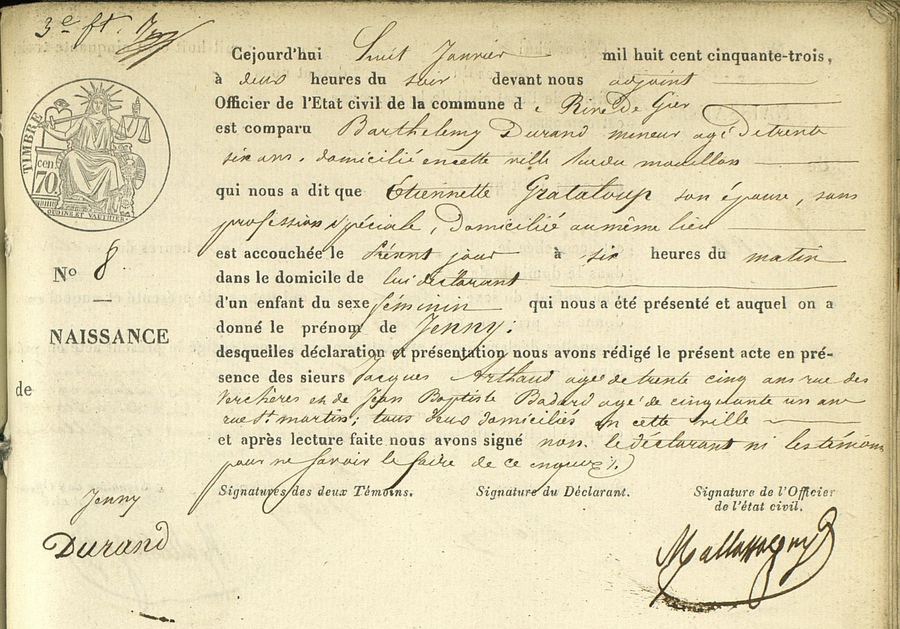 3e ft.
Cejourd'hui huit Janvier mil huit cent cinquante-trois,
à deux heures du soir devant nous adjoint
Officier de l'Etat civil de la commune de Rive De Gier
est comparu Barthelemy Durand mineur agé De trente
six ans, domicilié en cette ville rue du mouillon
qui nous a dit que Etiennette Grataloup son épouse, sans
profession spéciale, Domicilié au même lieu
est accouchée le présent jour à six heures du matin
dans le domicile de lui déclarant
d'un enfant du sexe féminin qui nous a été présenté et auquel on a
donné le prénom de Jenny.
desquelles déclaration et présentation nous avons rédigé le présent acte en pré-
sence des sieurs Jacques Arthaud agé de trente cinq ans rue des
Verchères et de Jean Baptiste Badard agé de cinquante un ans
rue St. martin; tous deux domiciliés en cette ville
et après lecture faite nous avons signé non le déclarant ni les témoins
pour ne savoir le faire de ce enquis
Signatures des deux Témoins. Signature du Déclarant. Signature de l'Officier
de l'état civil.
TIMBRE
cen.
70
No 8
NAISSANCE
de
Jenny
Durand